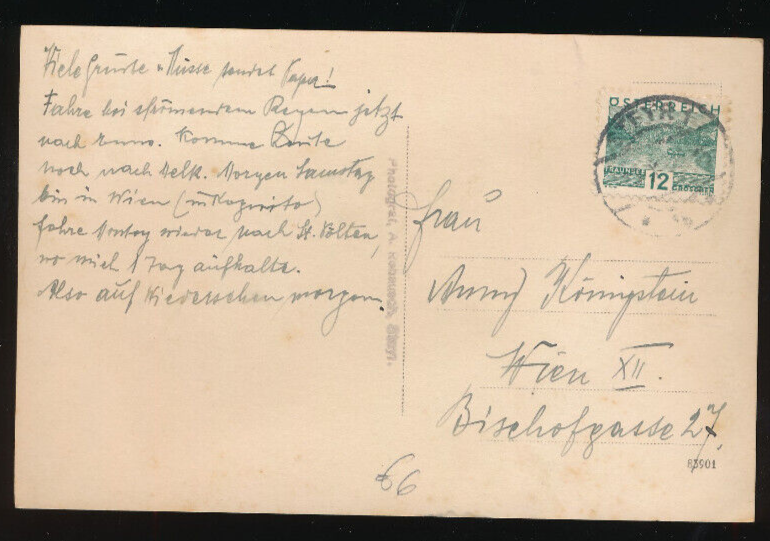 Viele Grüsse u. Küsse sendet Papa!
Fahre bei strömendem Regen jetzt
nach Enns. Komme heute
noch nach Melk. Morgen Samstag
bin in Wien
fahre Montag wieder nach St. Pölten,
wo mich 1 Tag aufhalte.
Also auf Wiedersehen morgen.
Photograf. A. Steyr.
ÖSTERREICH
STEYR 1
TRAUNSEE
12 GROSCHEN
Frau
Königstein
Wien XII.
Bischofgasse 27.
83901
66